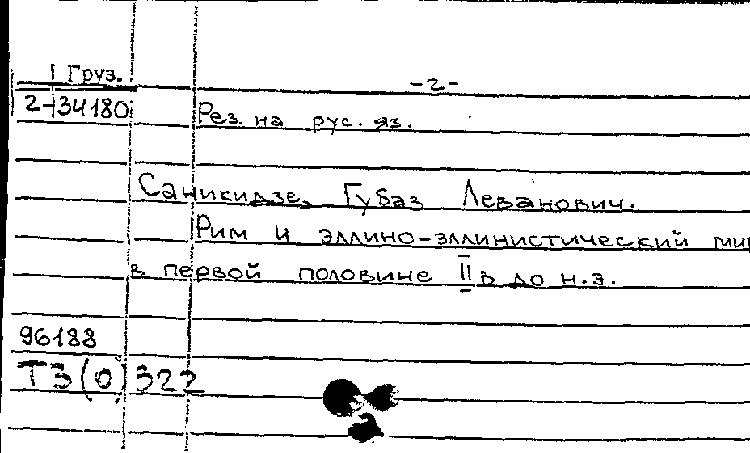 Груз.
-2-
2-34180
Рез. на рус. яз.
Саникидзе, Губаз Леванович.
Рим и эллино-эллинистический мир
в первой половине II в до н.э.
96188
Т3(0)322